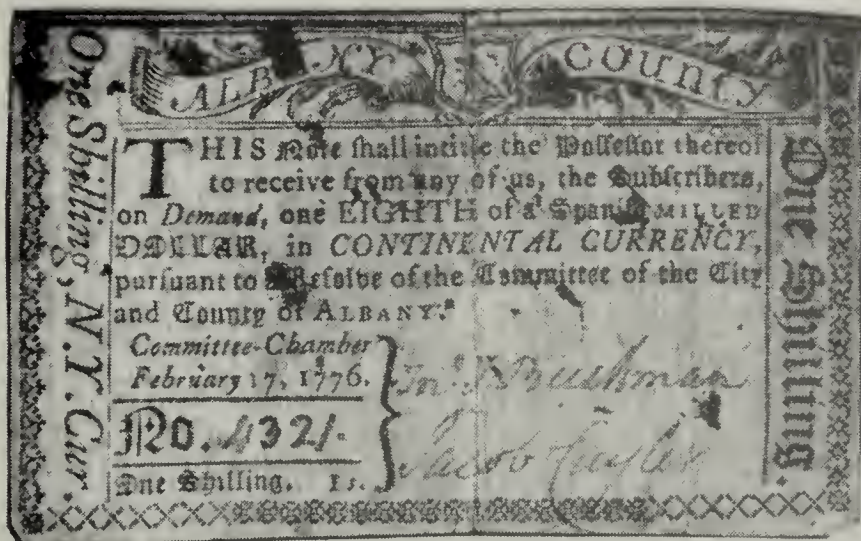 ALBANY COUNTY
One Shilling, N.Y. Cur.
THIS Note ſhall intitle the Poſſeſſor thereof
to receive from any of us, the Subſcribers,
on Demand, one EIGHTH of a Spaniſh MILLED
DOLLAR, in CONTINENTAL CURRENCY,
purſuant to a Reſolve of the Committee of the City
and County of ALBANY.
Committee-Chamber
February 17, 1776.
No. 4321.
One Shilling. 1s.
Jno. Bruehman
Jacob Cuyler
One Shilling.